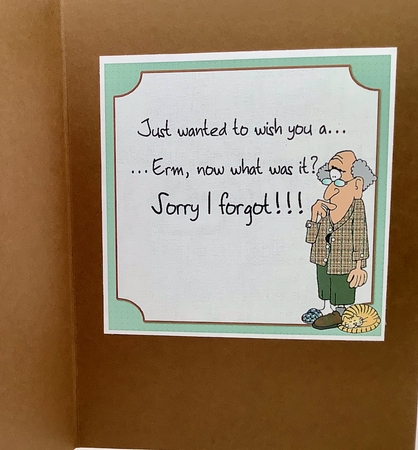 Just wanted to wish you a...
...Erm, now what was it?
Sorry I forgot!!!